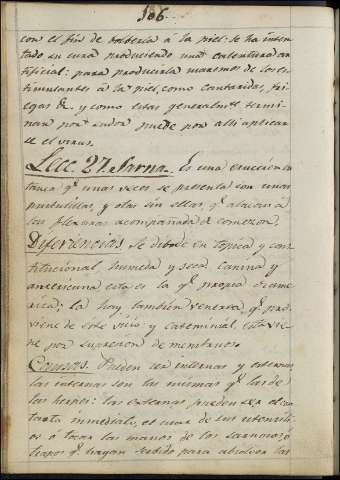 106
con el fin de bolberla á la piel: se ha inten
tado su cura produciendo una calentura ar
tificial: para producirla usaremos de los es
timulantes á la piel, como cantaridas, frie
egas &. y como estas generalmte. termi
nan por sudor puede por alli aplicar
se el virus.
Lecc. 27. Sarna. Es una erupcion cu
tanea qe. unas veces se presenta con unas
pustulillas, y otras sin ellas, qe. atacan á
las flexuras acompañada de comezon.
Diferiencias. Se divide en topica y cons
titucional, humeda y seca, canina y
americana esta es la qe. propia de ame
rica; la hay tambien venerea, qe. pro
viene de este vicio y catemenial, esta vie
ne por supresion de menstruos
Causas. Pueden ser internas y esternas,
las internas son las mismas qe. las de
los herpes: las esternas pueden ser el con
tacto inmediato, el usar de sus utensili
os ó tocar las manos de los sarnosos, ó
trapos qe. hayan serbido para absolber las